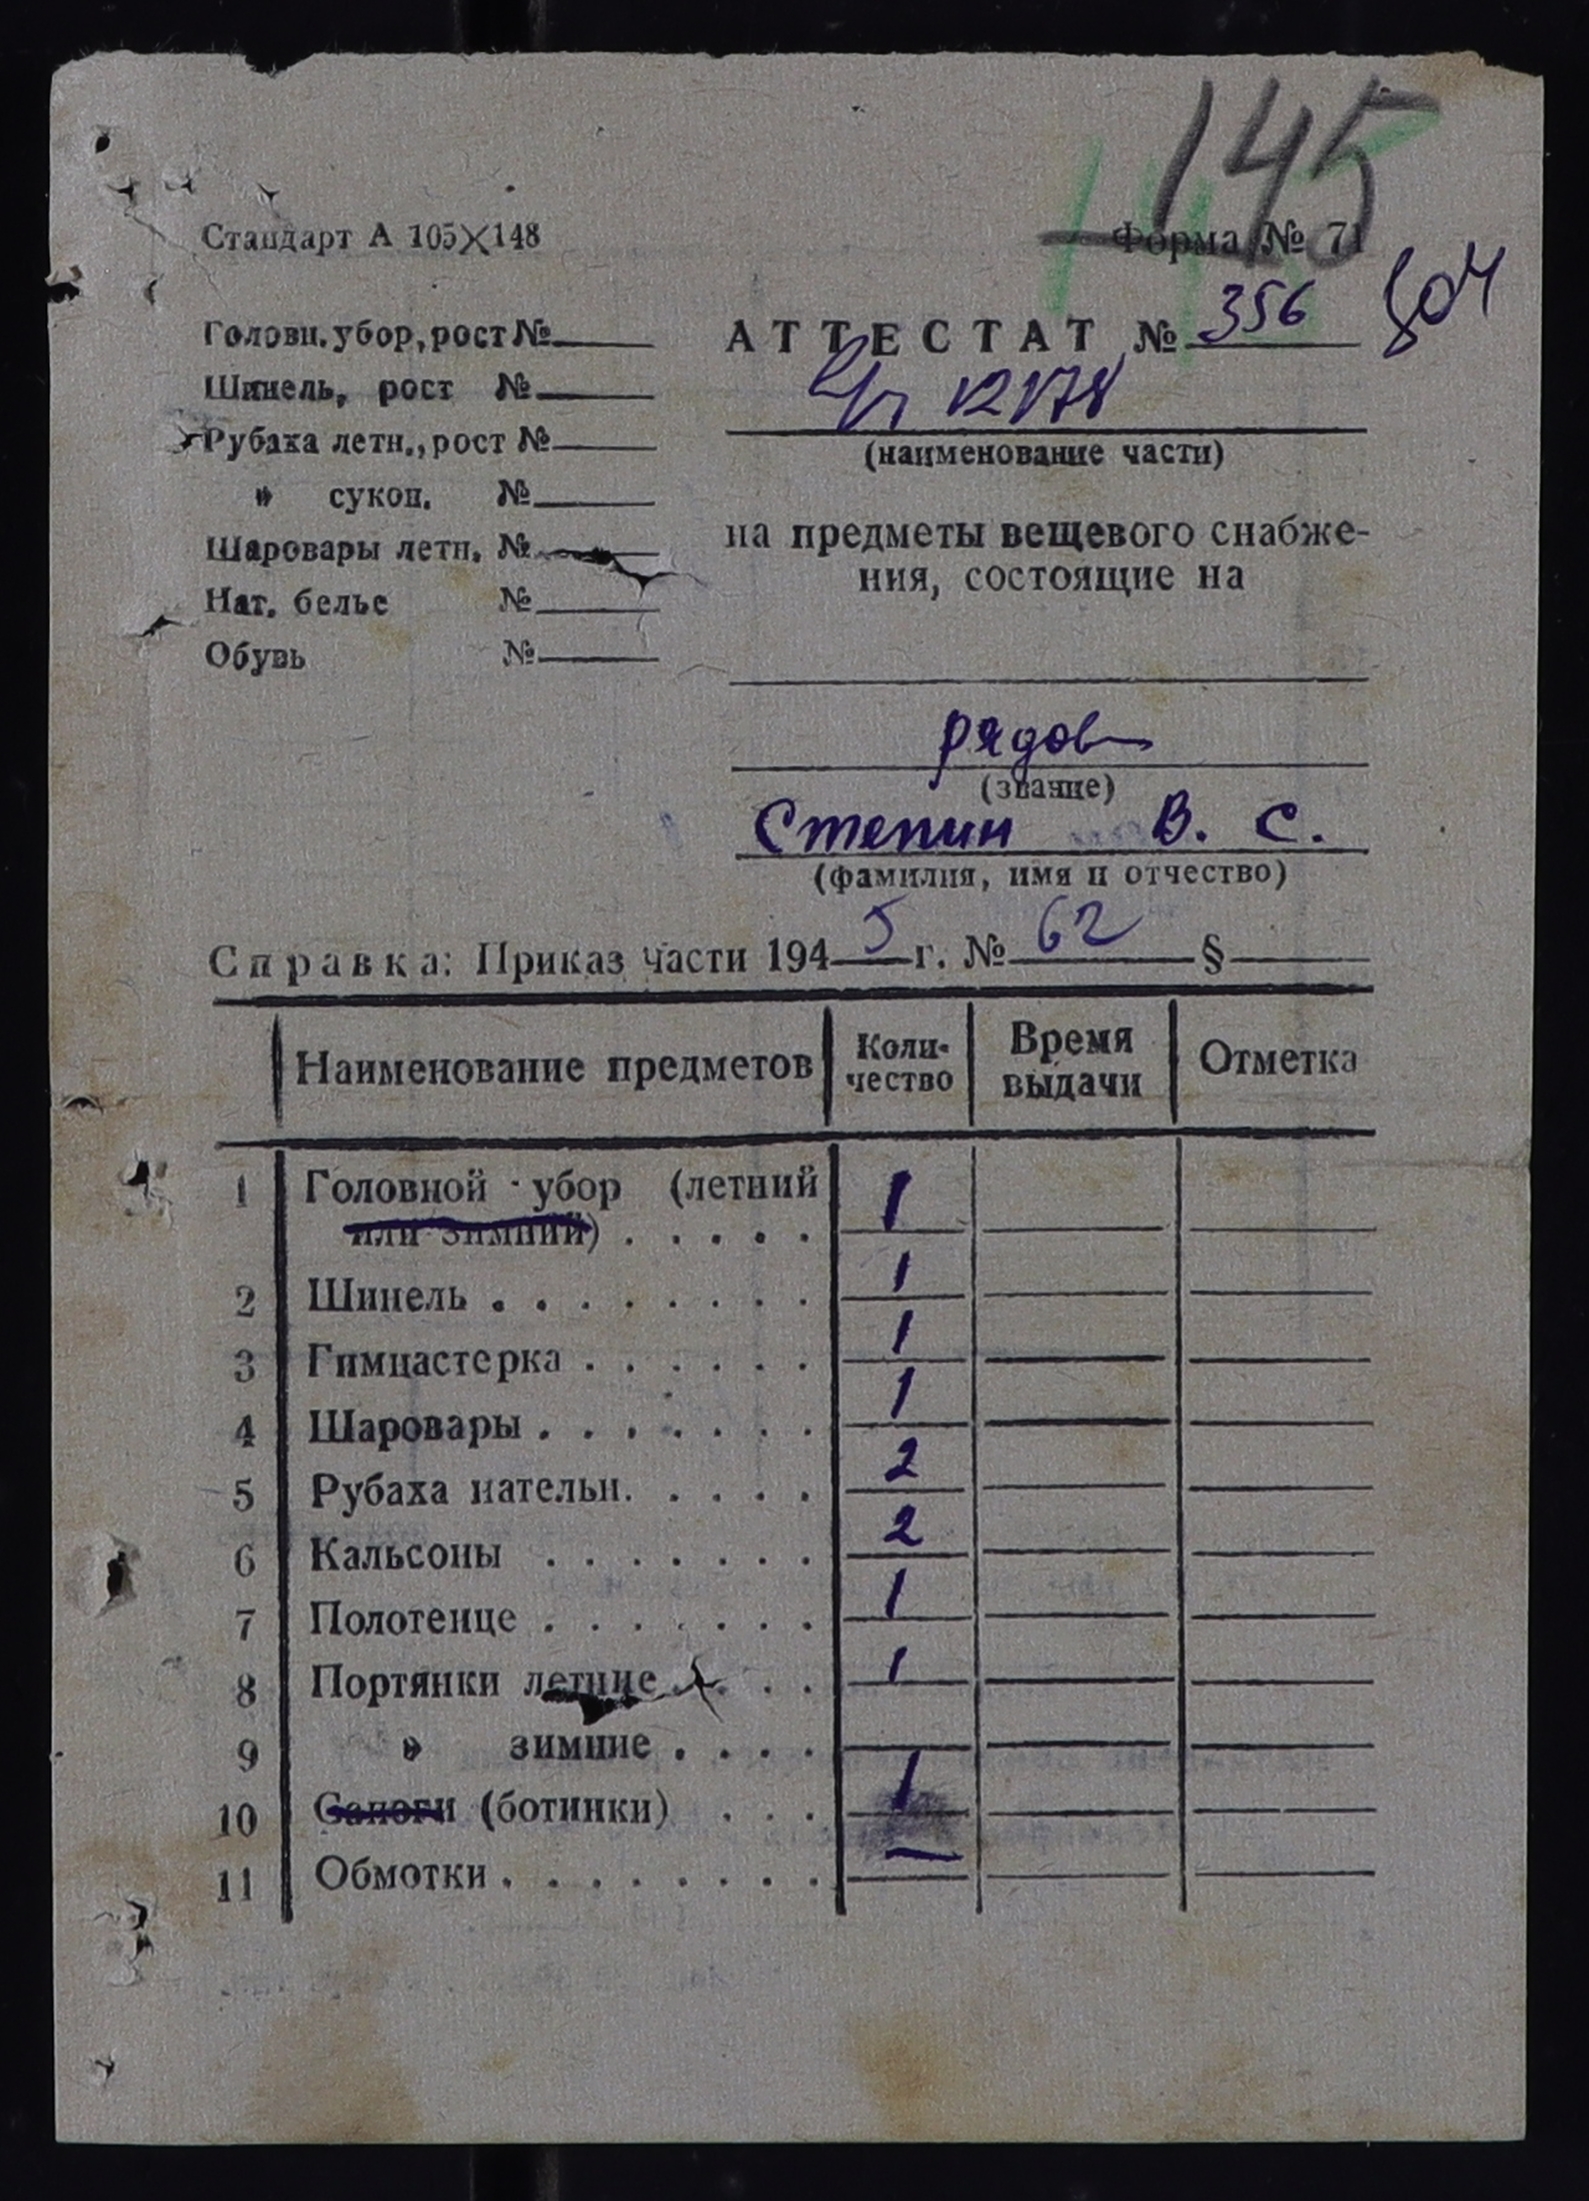 145
145
Стандарт А 105×148
Форма № 71
Головн. убор, рост №
Шинель, рост №
Рубаха летн., рост №
» сукон. №
Шаровары летн. №
Нат. белье №
Обувь №
АТТЕСТАТ № 356
804
в/ч 12178
(наименование части)
на предметы вещевого снабже-
ния, состоящие на
рядов
(звание)
Степин В. С.
(фамилия, имя и отчество)
Справка: Приказ части 1945 г. № 62 §
Наименование предметов | Коли-чество | Время выдачи | Отметка
1 Головной убор (летний 1
или зимний) . . . . .
2 Шинель . . . . . . . . 1
3 Гимнастерка . . . . . . 1
4 Шаровары . . . . . . . 1
5 Рубаха нательн. . . . . 2
6 Кальсоны . . . . . . . 2
7 Полотенце . . . . . . . 1
8 Портянки летние . . . . 1
9 » зимние . . . .
10 Сапоги (ботинки) . . . 1
11 Обмотки . . . . . . . . —